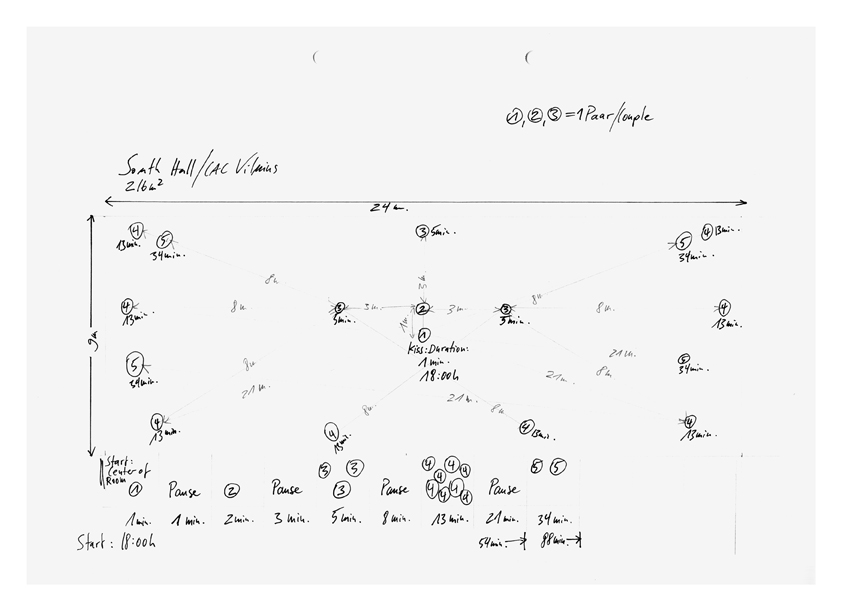 ①,②,③=1Paar/Couple
South Hall/CAC Vilnius
216m²
24m.
④
13min.
⑤
34min.
③5min.
⑤
34min.
④13min.
8m
8m
3m
9m
④
13min.
8m.
③
5min.
3m.
②
3m.
③
5min.
8m.
④
13min.
1m
①
Kiss:Duration:
1min.
18:00h
⑤
34min.
8m
21m.
21m.
21m.
8m
⑤
34min.
④
13min.
④
13min.
8m
21m.
8m
④13min.
④
13min.
Start:
Center of
Room
③ ③
④ ④ ④ ④
⑤ ⑤
① Pause ② Pause ③ Pause ④ ④ ④ ④ Pause
1min. 1min. 2min. 3min. 5min. 8min. 13min. 21min. 34min.
Start: 18:00h
54min.
88min.